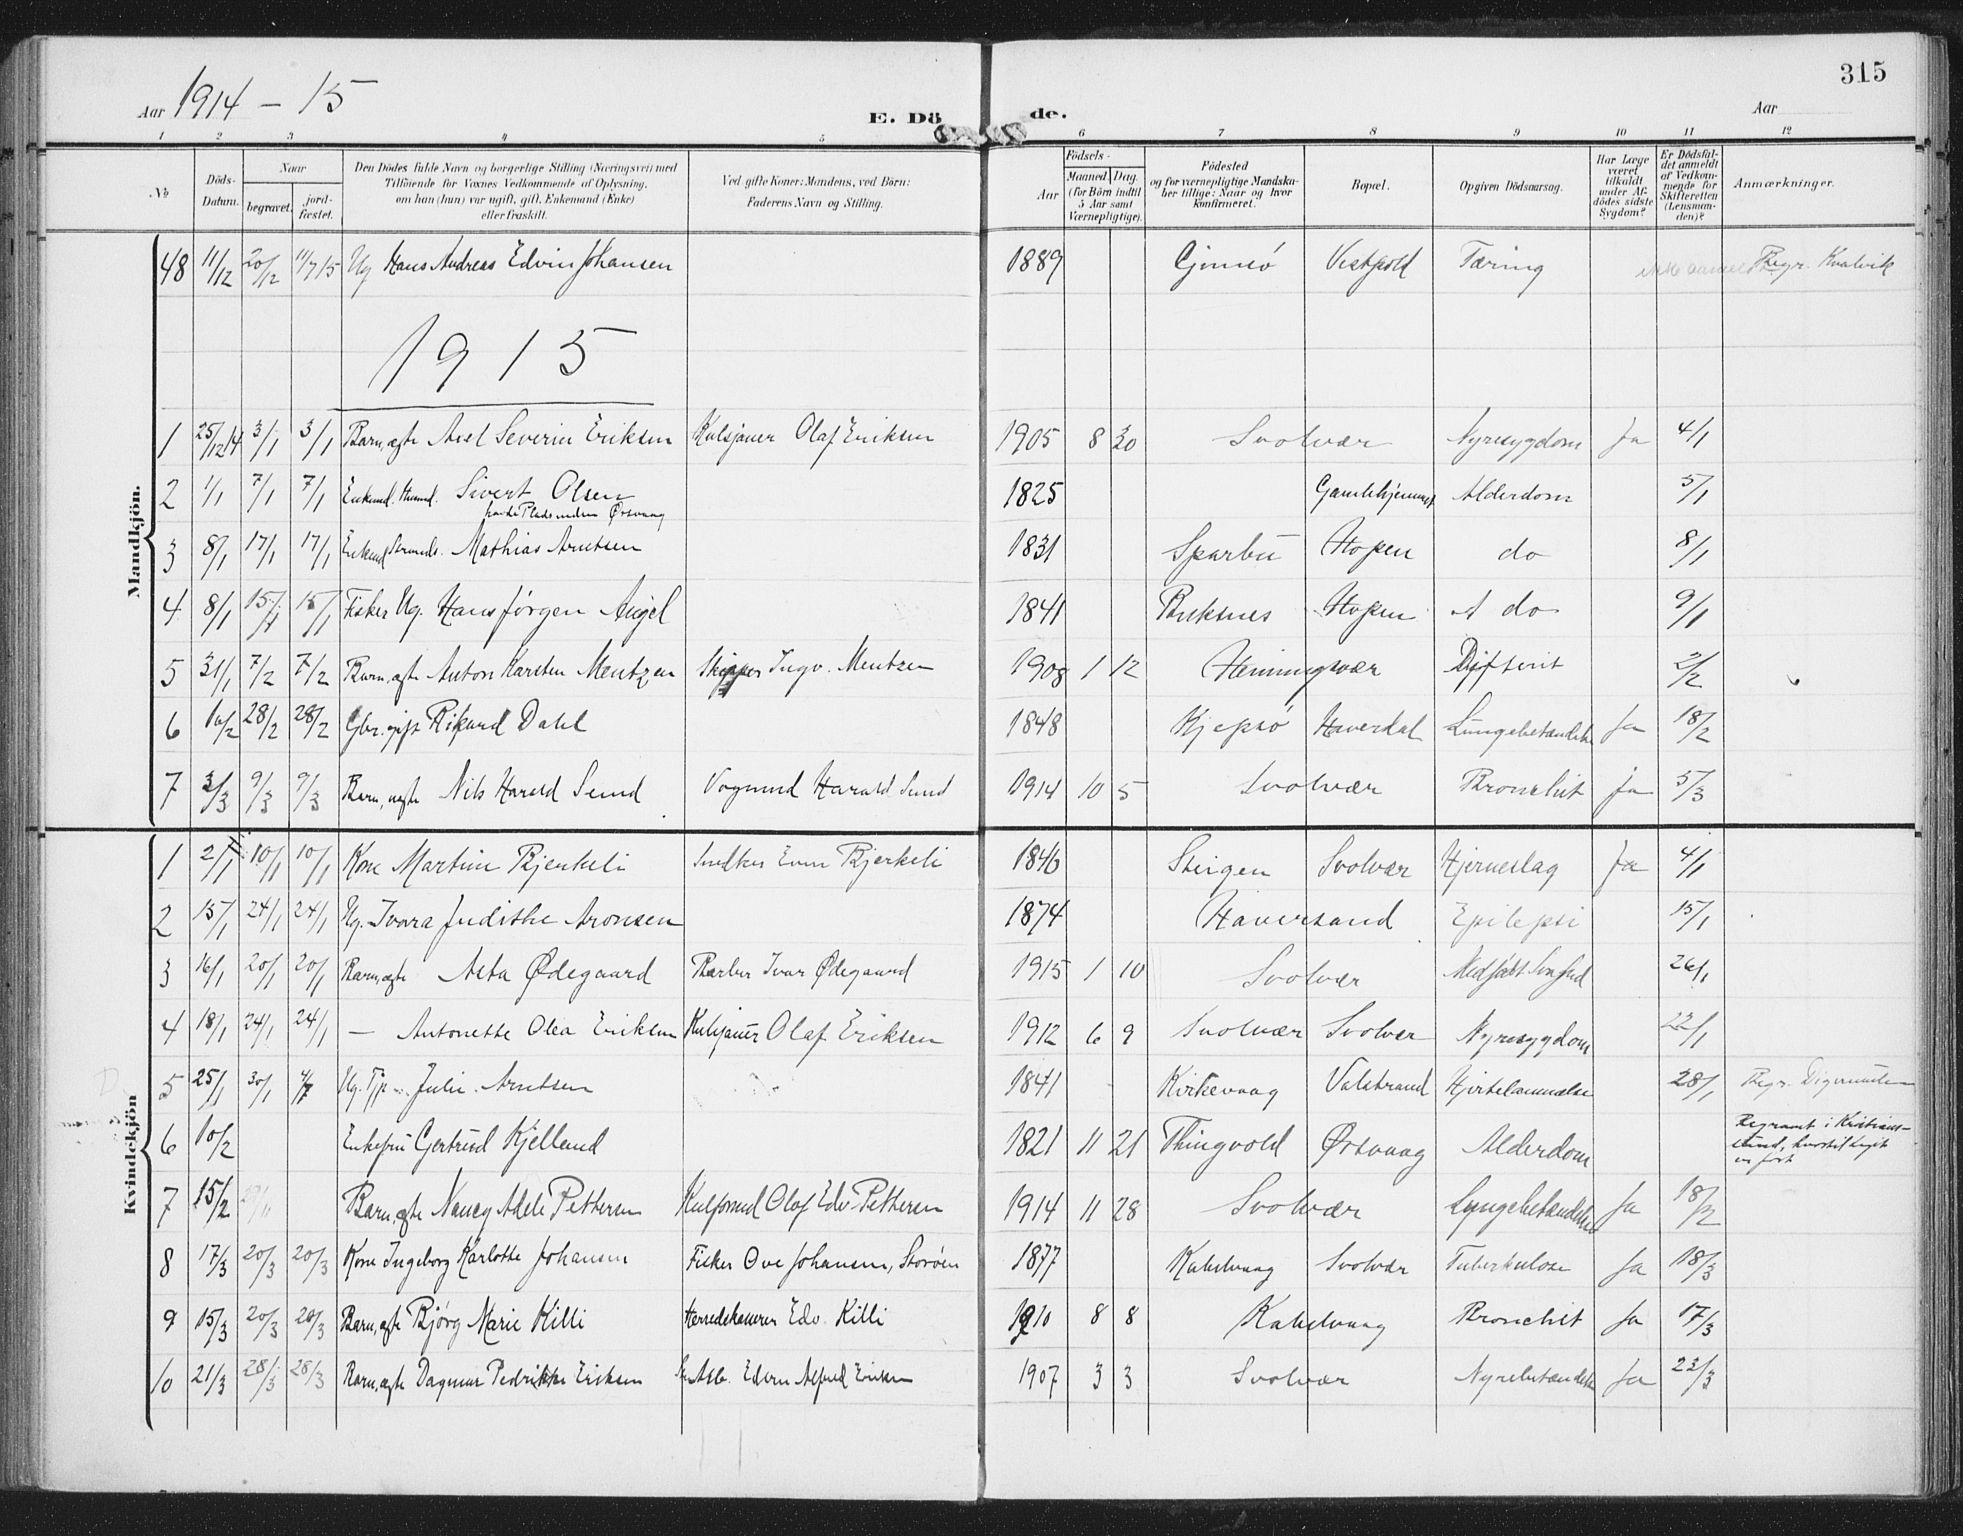 315
Aar 1914 - 15
E. Dö de.
Aar
1 2 3 4 5 6 7 8 9 10 11 12
No
Döds-Datum.
Naar
begravet.
jord-fæstet.
Den Dödes fulde Navn og borgerlige Stilling (Næringsvei) med
Tilföiende for Voxnes Vedkommende af Oplysning.
om han (hun) var ugift, gift, Enkemand (Enke)
eller fraskilt.
Ved gifte Koner: Mandens, ved Börn:
Faderens Navn og Stilling.
Födsels-
Aar
Maaned. Dag.
(for Börn indtil
5 Aar samt
Værnepligtige).
Födested
og for værnepligtige Mandska-
ber tillige: Naar og hvor
Konfirmeret.
Bopæl.
Opgiven Dödsaarsag.
Har Læge
været
tilkaldt
under Af-
dödes sidste
Sygdom?
Er Dödsfal-
det anmeldt
af Vedkom-
mende for
Skifteretten
(Lensman-
den)?
Anmærkninger.
Mandkjön.
48 11/12 20/12 11/7 15 Ug Hans Andreas Edvin Johansen 1889 Gimsö Vestpold Tæring Begr. Kvalvik
1915
1 25/12 14 3/1 3/1 Barn, ægte Axel Severin Eriksen Kulsjauer Olaf Eriksen 1905 8 30 Svolvær Nyresygdom Ja 4/1
2 1/1 7/1 7/1 Enkemd. Sivert Olsen 1825 Gamlehjemmet Alderdom 5/1
Ørsvaag
3 8/1 17/1 17/1 Enkemd Mathias Arntsen 1831 Sparbu Hopen do 8/1
4 8/1 15/1 15/1 Fisker Ug. Hans Jörgen Angel 1841 Buksnes Hopen do 9/1
5 31/1 7/2 7/2 Barn, ægte Anton Karsten Mentzen Skipper Ingv. Mentzen 1908 1 12 Henningsvær Difterit 2/2
6 10/2 28/2 28/2 Gbr. gift Rikard Dahl 1848 Kjepsö Haverdal Lungebetændelse Ja 18/2
7 3/3 9/3 9/3 Barn, ægte Nils Harald Sund Vognmd Harald Sund 1914 10 5 Svolvær Bronchit ja 5/3
Kvindekjön
1 2/1 10/1 10/1 Kone Martine Bjerkeli Snedker Even Bjerkeli 1846 Steigen Svolvær Hjerneslag Ja 4/1
2 15/1 24/1 24/1 Ug. Ivara Judithe Aronsen 1874 Haversand Epilepsi 15/1
3 16/1 20/1 20/1 Barn, ægte Asta Ødegaard Barber Ivar Ødegaard 1915 1 10 Svolvær Medfödt Svaghed 26/1
4 18/1 24/1 24/1 — Antonette Olea Eriksen Kulsjauer Olaf Eriksen 1912 6 9 Svolvær Svolvær Nyresygdom 22/1
5 25/1 30/1 4/7 Ug. Tjp Julie Arntsen 1841 Kirkevaag Valstrand Hjertelammelse 28/1 Begr. Digermulen
6 10/2 Enkefru Gertrud Kjelland 1821 11 21 Thingvold Ørsvaag Alderdom Begravet i Kristians-
sund, hvortil Liget
er fört
7 15/2 Barn, ægte Nancy Adele Pettersen Olaf Edv. Pettersen 1914 11 28 Svolvær Lungebetændelse Ja 18/2
8 17/3 20/3 20/3 Kone Ingeborg Karlotte Johansen Fisker Ove Johansen, Storöen 1877 Kabelvaag Svolvær Tuberkulose Ja 18/3
9 15/3 20/3 20/3 Barn, ægte Bjørg Marie Killi Herredskasserer Edv. Killi 1910 8 8 Kabelvaag Bronchit Ja 17/3
10 21/3 28/3 28/3 Barn, ægte Dagmar Pedrikke Eriksen Edvin Alfred Eriksen 1907 3 3 Svolvær Nyrebetændelse Ja 23/3